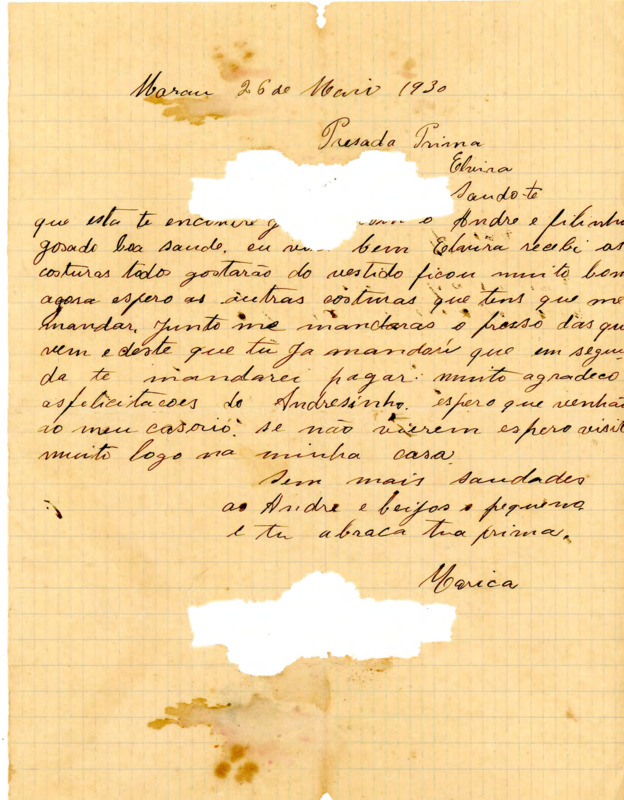 Marau 26 de Maio 1930
Presada Prima
Elvira
Saudo-te
que esta te encontre o Andre e filinho
gosado boa saude. eu vou bem Elvira recebi as
costuras todos gostarão do vestido ficou muito bom
agora espero as outras costuras que tens que me
mandar. junto me mandaras o presso das que
vem e deste que tu ja mandou que em segui
da te mandarei pagar. muito agradeco
as felicitacoes do Andresinho. espero que venhão
ao meu casorio. se não vierem espero visit
muito logo na minha casa
Sem mais saudades
ao Andre e beijos o pequeno
e tu abraca tua prima.
Marica